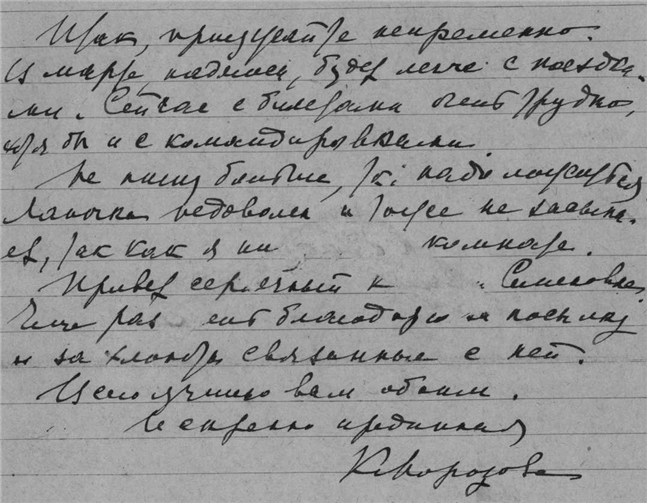 Итак, приезжайте непременно.
В марте надеюсь, будет легче с поездка-
ми. Сейчас с билетами очень трудно,
хотя бы и с командировками.
Не пишу больше, т.к. надо ложиться
Ляночка недоволен и тоже не засыпа-
ет, так как я пи комнате.
Привет сердечный к Семеновне.
Еще раз благодарю за посылку
и за хлопоты связанные с ней.
Всего лучшего вам обоим.
Искренно преданная
К. Морозова